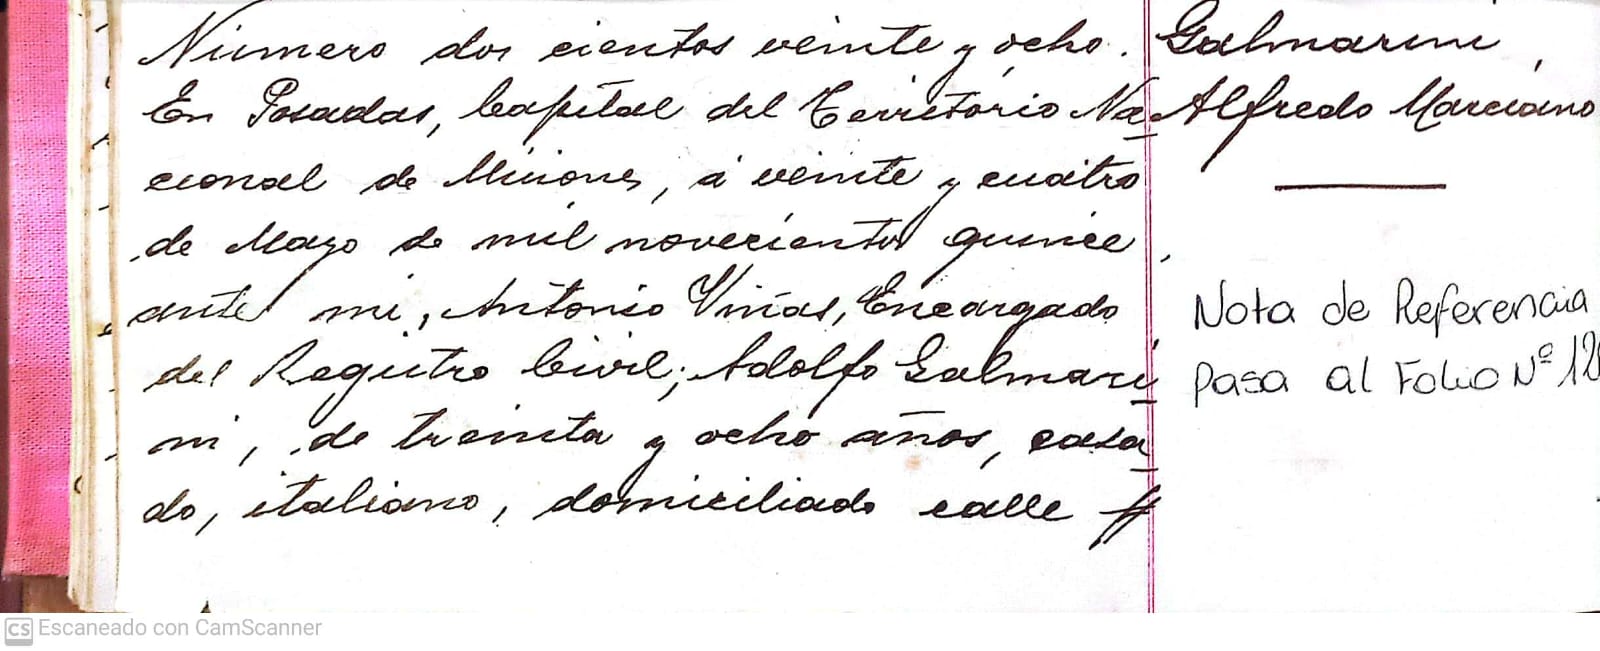 Número dos cientos veinte y ocho.
En Posadas, Capital del Territorio Na
cional de Misiones, á veinte y cuatro
de Mayo de mil novecientos quince,
ante mi, Antonio Viñas, Encargado
del Registro Civil; Adolfo Galmari
ni, de treinta y ocho años, casa
do, italiano, domiciliado calle
Galmarini,
Alfredo Marciano
Nota de Referencia
Pasa al Folio Nº
CS Escaneado con CamScanner